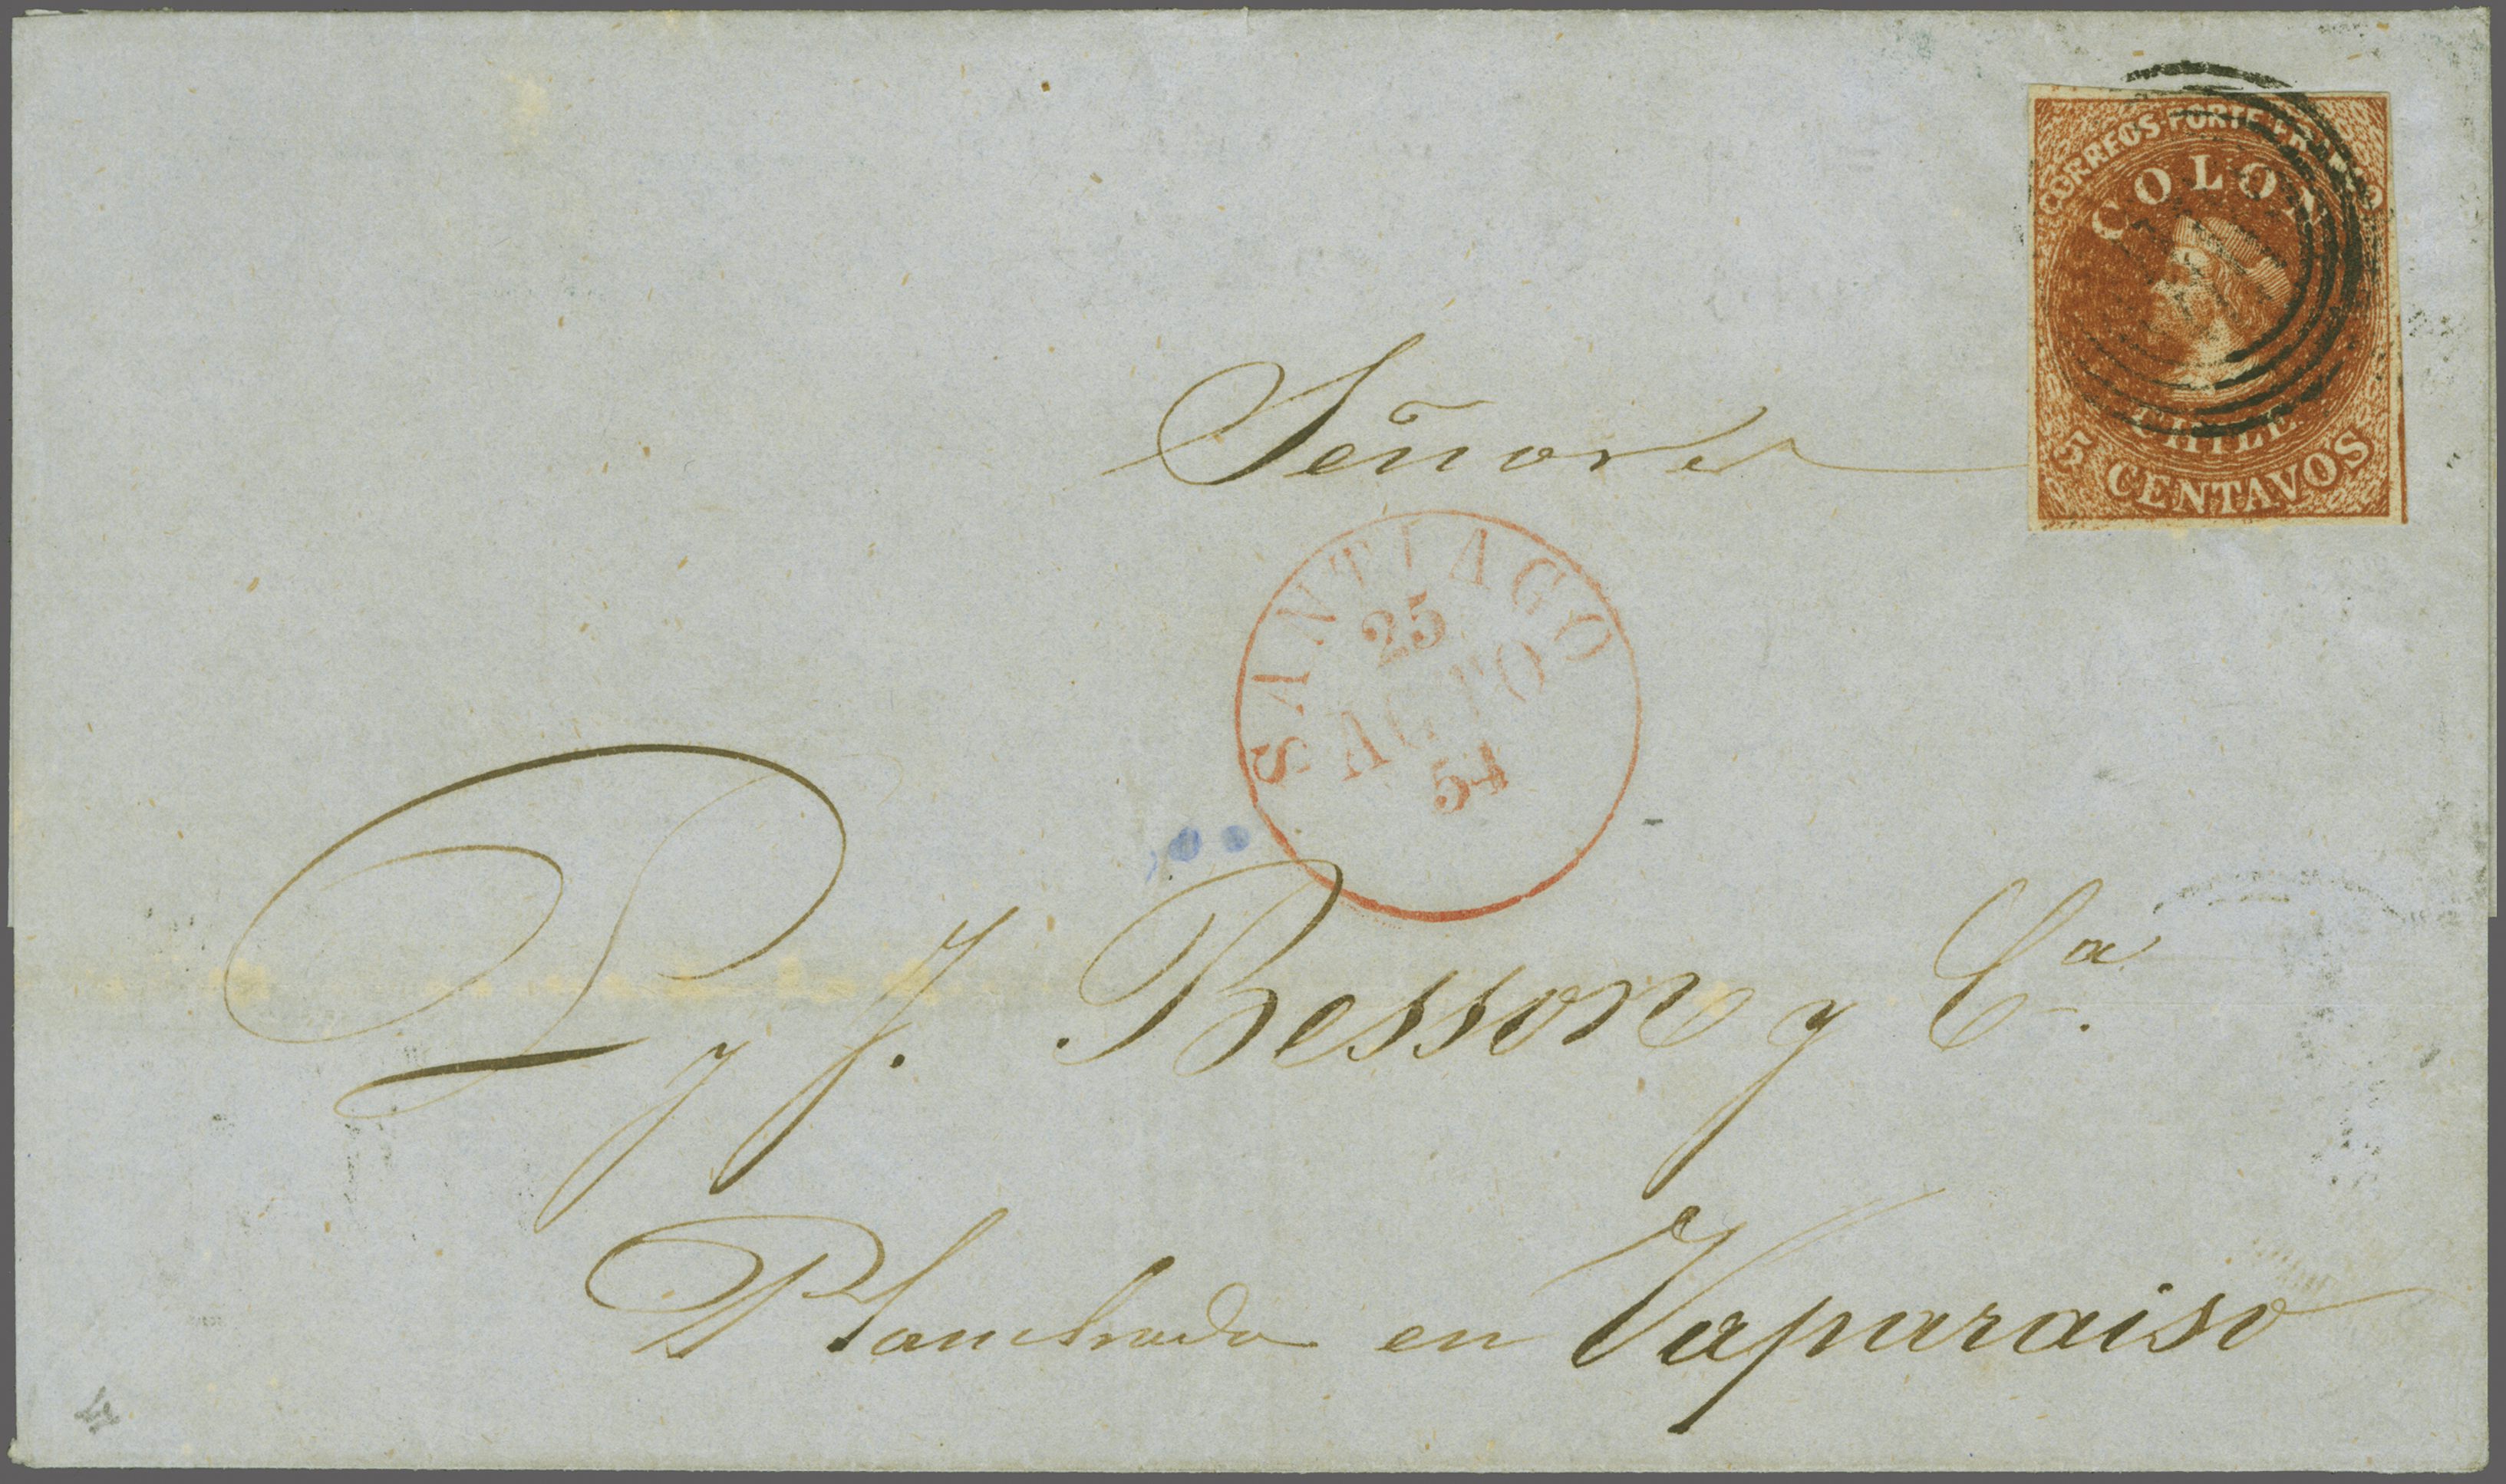 CORREOS PORTE FRANCO
COLON
CHILE
5 CENTAVOS
Señores
SANTIAGO
25
AGTO
54
P y J. Besson y Ca.
Planchada en Vaparaiso